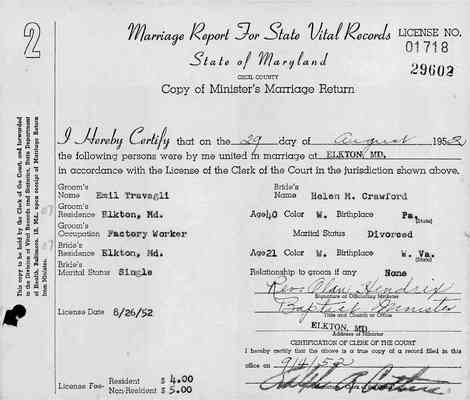 2
Marriage Report For State Vital Records
State of Maryland
CECIL COUNTY
Copy of Minister's Marriage Return
LICENSE NO.
01718
29602
I Hereby Certify that on the 29 day of August 1952
the following persons were by me united in marriage at ELKTON, MD.
in accordance with the License of the Clerk of the Court in the jurisdiction shown above.
Groom's Name Emil Travagli Bride's Name Helen M. Crawford
Groom's Residence Elkton, Md. Age 40 Color W. Birthplace Pa. (State)
Groom's Occupation Factory Worker Marital Status Divorced
Bride's Residence Elkton, Md. Age 21 Color W. Birthplace W. Va. (State)
Bride's Marital Status Single Relationship to groom if any None
Rev. Olan Hendrix
Signature of Officiating Minister
License Date 8/26/52 Baptist Minister
Title and Church or Office
ELKTON, MD.
Address of Minister
CERTIFICATION OF CLERK OF THE COURT
I hereby certify that the above is a true copy of a record filed in this
office on 9/4/52
License Fee- Resident $ 4.00
Non-Resident $ 5.00
This copy to be held by the Clerk of the Court, and forwarded
to the Division of Vital Records and Statistics, State Department
of Health, Baltimore 18, Md., upon receipt of Marriage Return
from Minister.